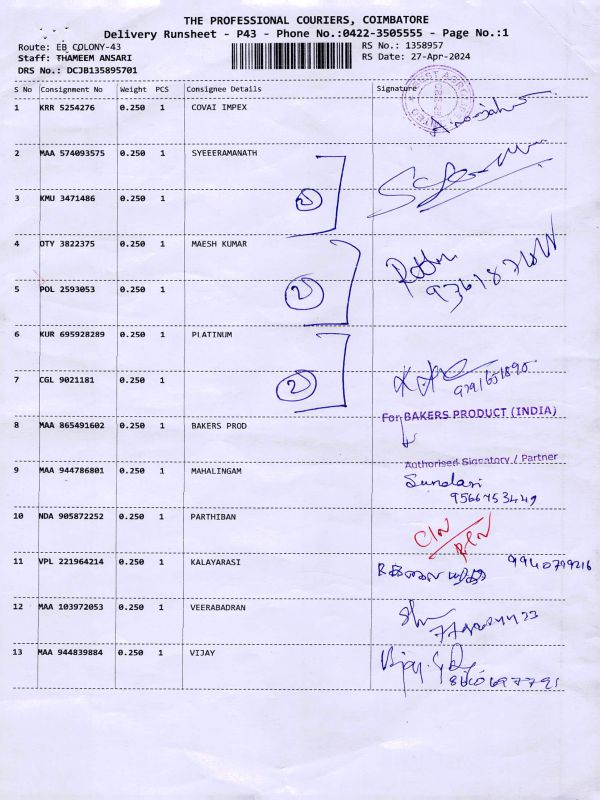 THE PROFESSIONAL COURIERS, COIMBATORE
Delivery Runsheet - P43 - Phone No.:0422-3505555 - Page No.:1
Route: EB COLONY-43
RS No.: 1358957
Staff: THAMEEM ANSARI
RS Date: 27-Apr-2024
DRS No.: DCJB135895701
S No Consignment No Weight PCS Consignee Details Signature
1 KRR 5254276 0.250 1 COVAI IMPEX
2 MAA 574093575 0.250 1 SYEEERAMANATH
3 KMU 3471486 0.250 1
2
4 OTY 3822375 0.250 1 MAESH KUMAR
5 POL 2593053 0.250 1
2
6 KUR 695928289 0.250 1 PLATINUM
7 CGL 9021181 0.250 1
2 9791651890
8 MAA 865491602 0.250 1 BAKERS PROD
For BAKERS PRODUCT (INDIA)
Authorised Signatory / Partner
9 MAA 944786801 0.250 1 MAHALINGAM
Sundari
9566753449
10 NDA 905872252 0.250 1 PARTHIBAN
11 VPL 221964214 0.250 1 KALAYARASI
9940799216
12 MAA 103972053 0.250 1 VEERABADRAN
13 MAA 944839884 0.250 1 VIJAY